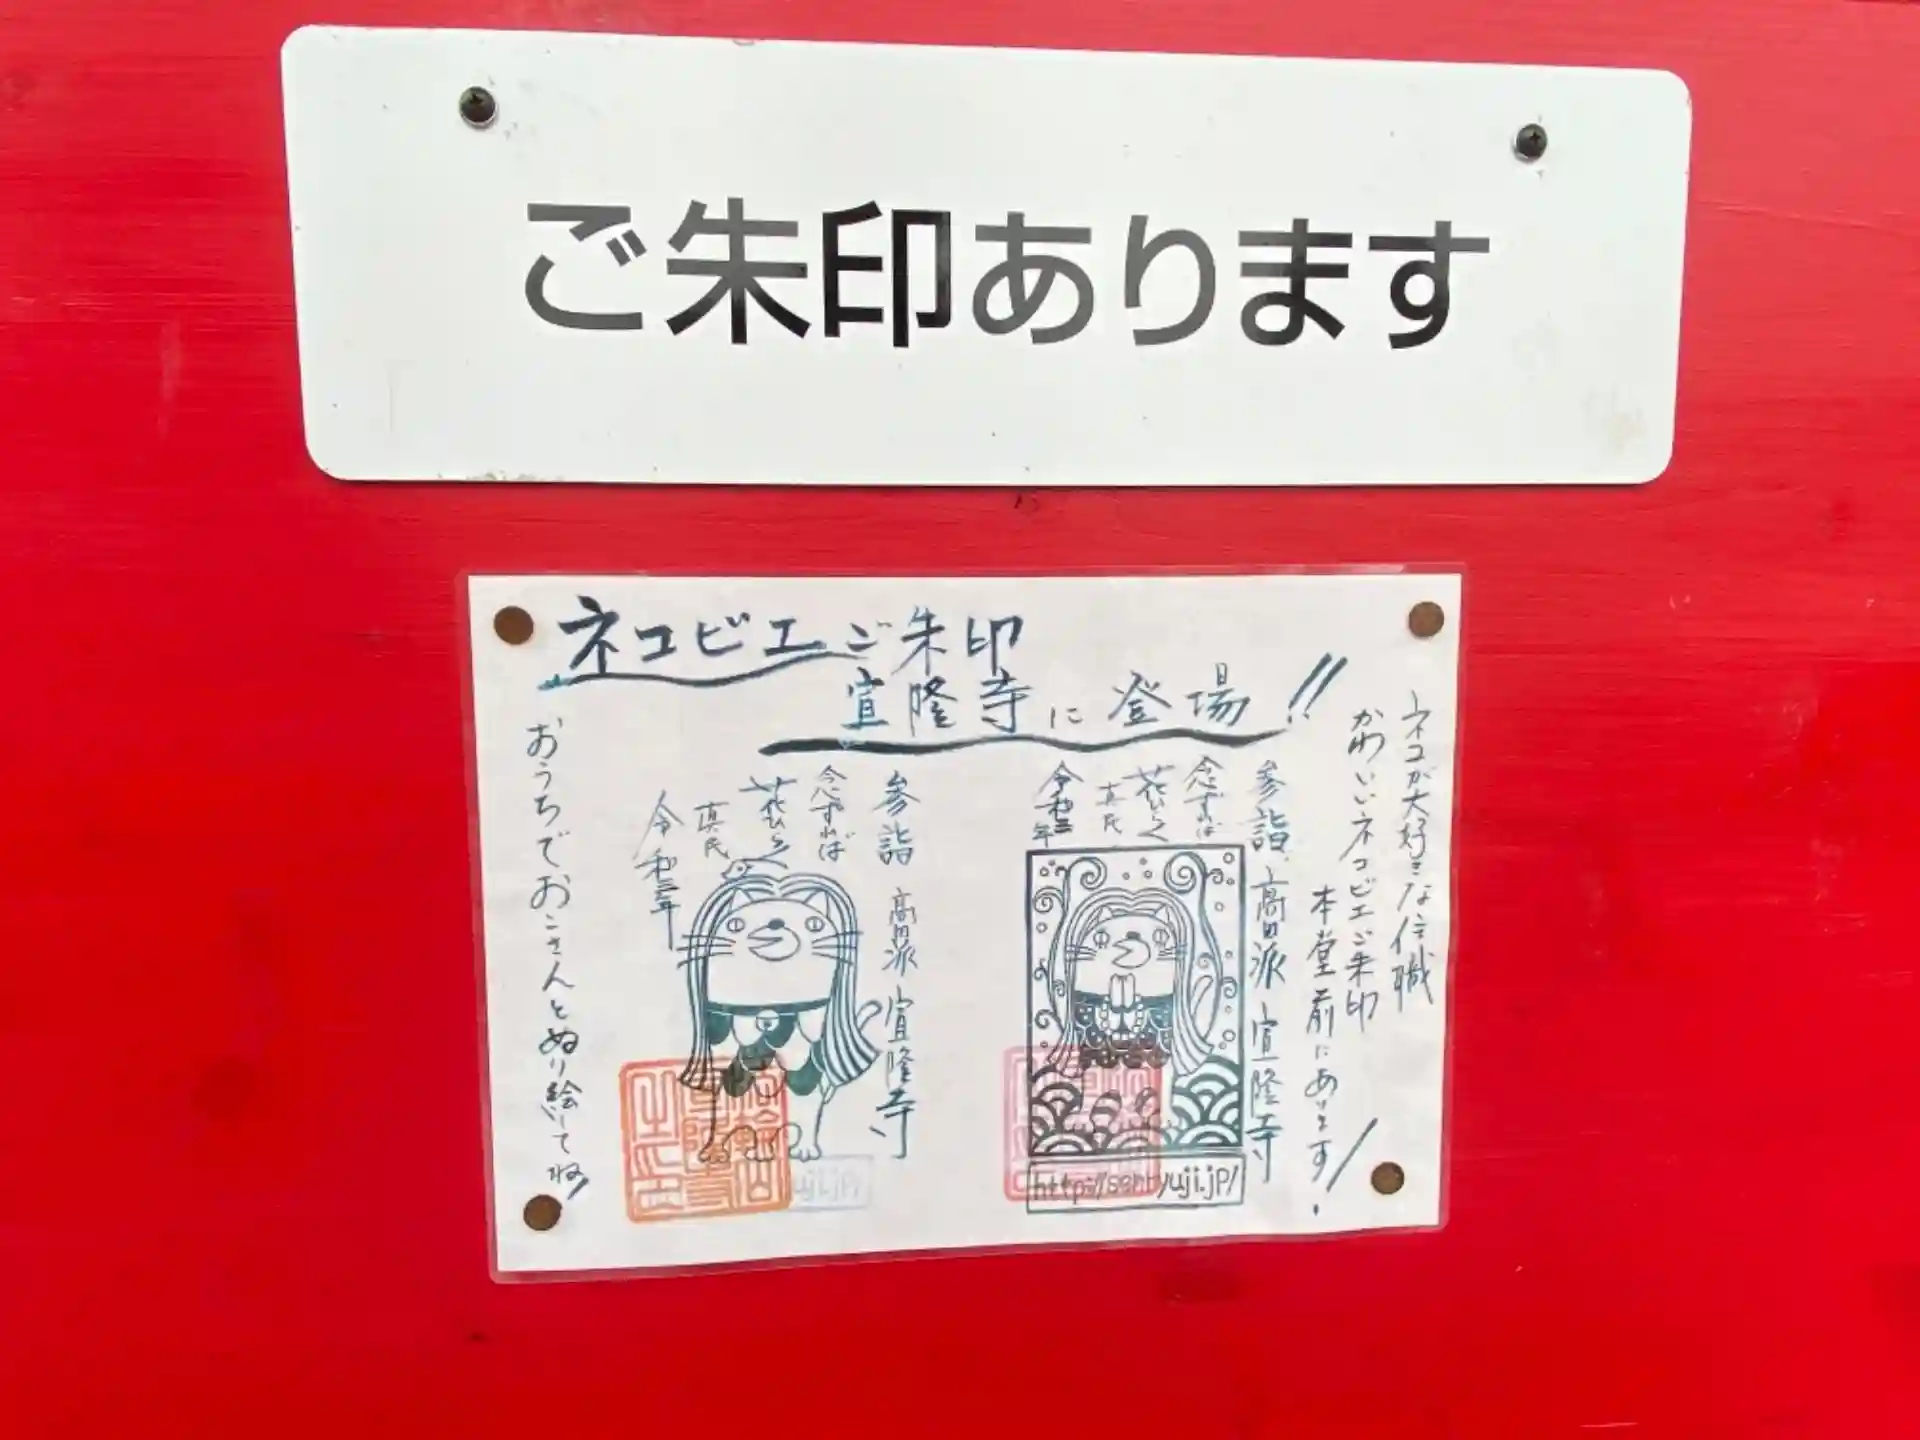 ご朱印あります
ネコビエご朱印
宣隆寺に登場!!
ネコが大好きな住職
かわいいネコビエご朱印
本堂前にあります!
参詣 高田派 宣隆寺
念ずれば
花ひらく
真民
令和三年
http://senryuji.jp/
参詣 高田派 宣隆寺
念ずれば
花ひらく
真民
令和三年
uji.jp/
おうちでおこさんとぬり絵してね!